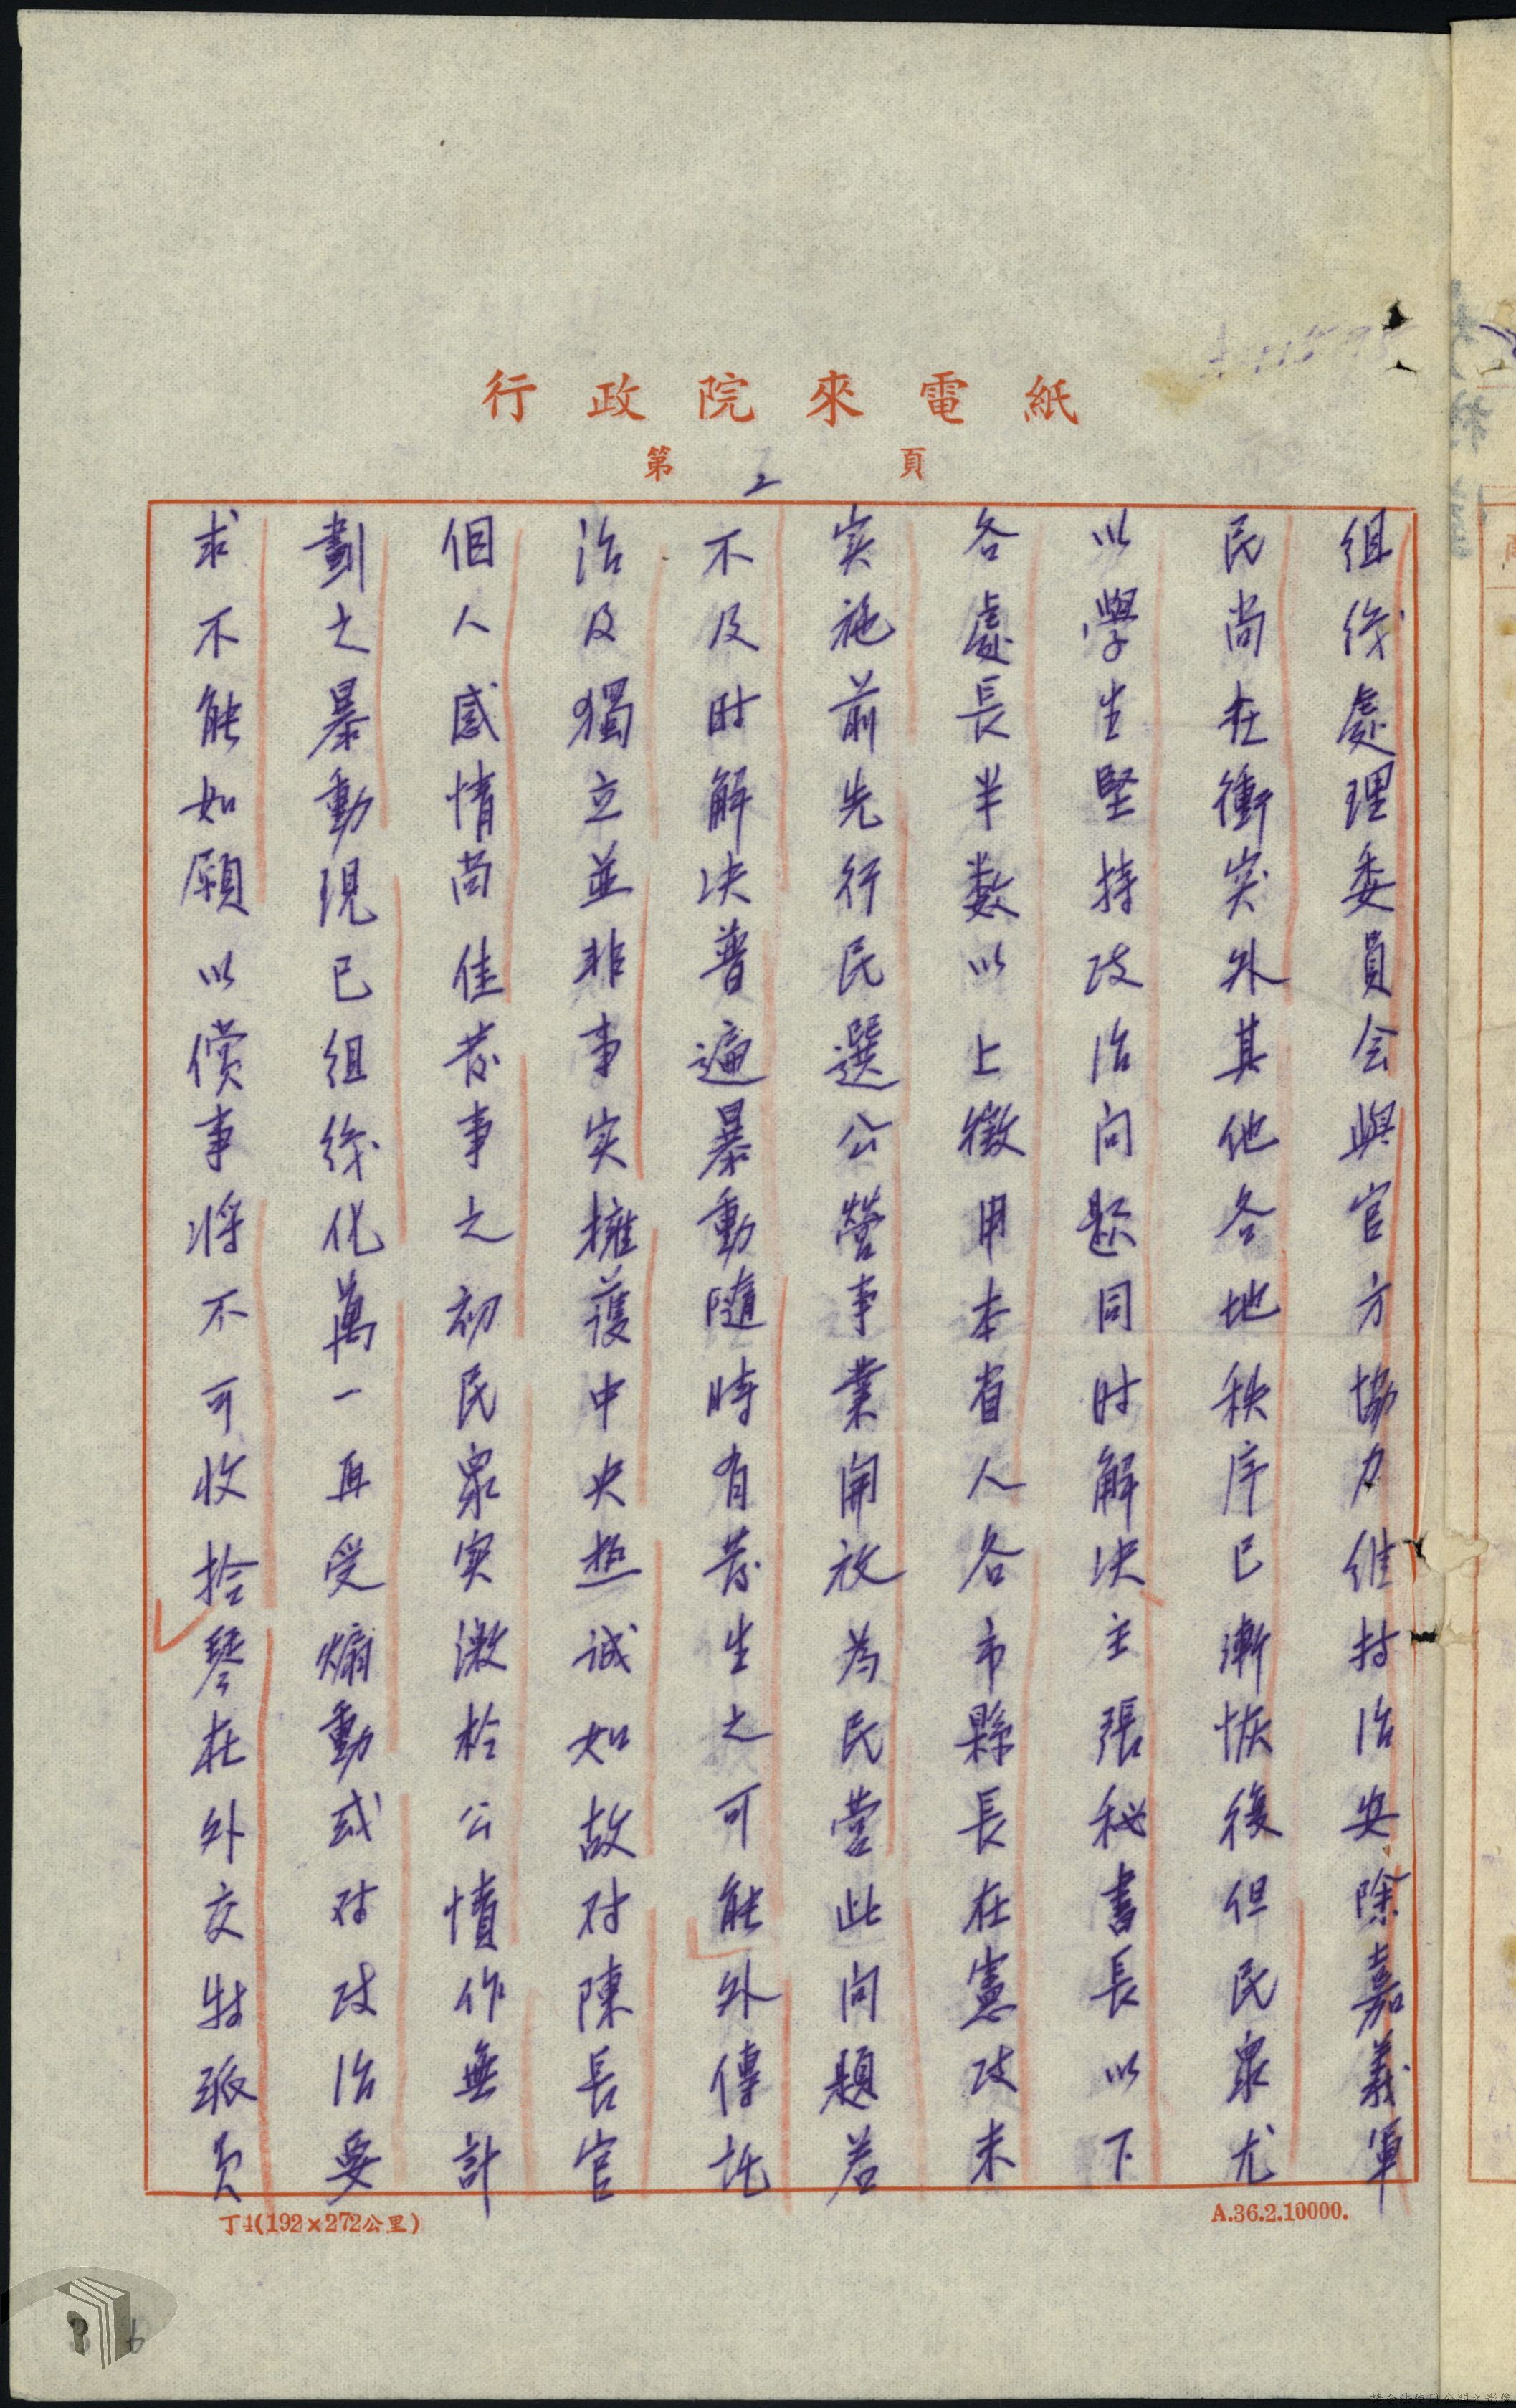 行政院來電紙
第2頁
組織處理委員会與官方協力維持治安除嘉義軍
民尚在衝突外其他各地秩序已漸恢復但民眾尤
以學生堅持政治问題同时解决主張秘書長以下
各處長半数以上徵用本省人各市縣長在憲政未
实施前先行民選公營事業開放為民营此问題若
不及时解决普遍暴動隨時有发生之可能外傳託
治及獨立並非事实擁護中央热诚如故对陳長官
個人感情尚佳发事之初民眾实激於公憤作無計
劃之暴動現已组织化萬一再受煽動或对政治要
求不能如願以償事将不可收拾琴在外交特派员
丁4(192×272公里)
A.36.2.10000.